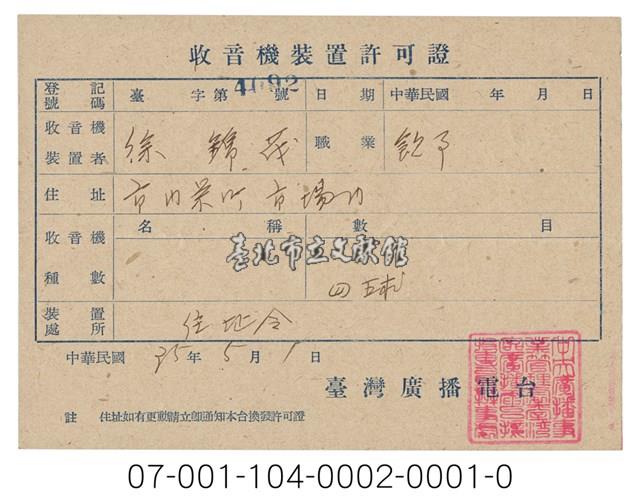 收音機裝置許可證
登記號碼 臺 字第 4092 號 日期 中華民國 年 月 日
收音機裝置者 徐錦茂 職業 飲
住址 市內榮町市場內
收音機種數 名稱 數目
臺北市立文獻館
四 五球
裝置處所 住址
中華民國 35 年 5 月 1 日
臺灣廣播電台
註 住址如有更動請立即通知本台換發許可證
07-001-104-0002-0001-0